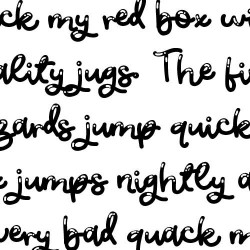 ck my red box wi
ality jugs. The fi
zards jump quick
jumps nightly a
very bad quack m